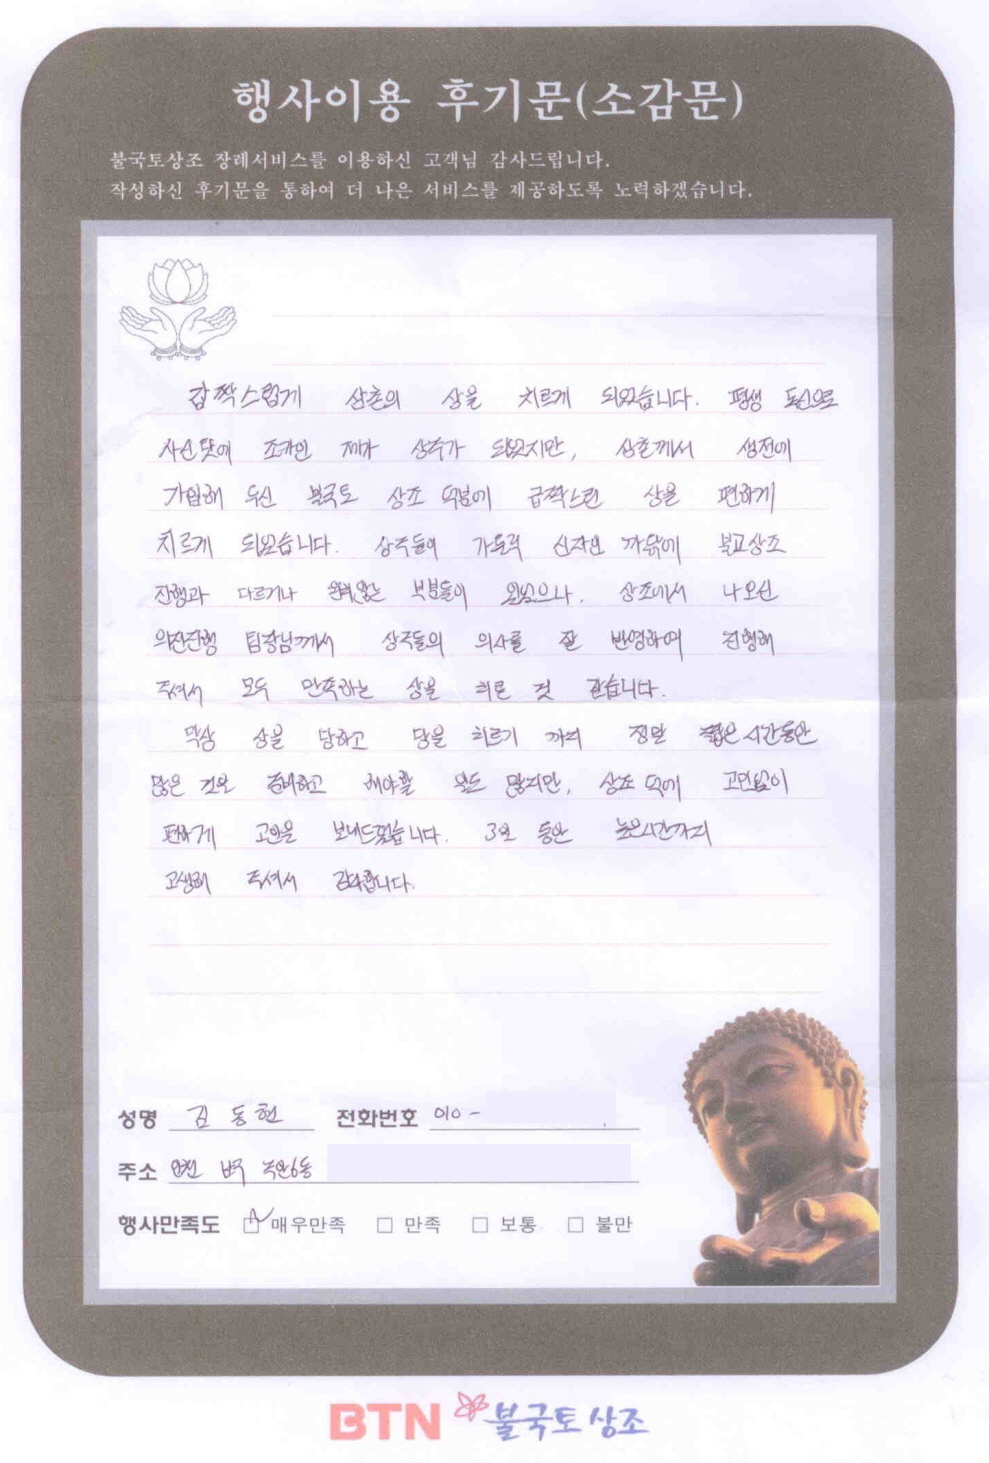 행사이용 후기문(소감문)
불국토상조 장례서비스를 이용하신 고객님 감사드립니다.
작성하신 후기문을 통하여 더 나은 서비스를 제공하도록 노력하겠습니다.
갑짝스럽게 삼촌의 상을 치르게 되었습니다. 평생 독신으로
사신 탓에 조카인 제가 상주가 되었지만, 삼촌께서 생전에
가입해 두신 불국토 상조 덕분에 급작스런 상을 편하게
치르게 되었습니다. 상주들이 가톨릭 신자인 까닭에 불교상조
진행과 다르거나 원치않는 부분들이 있었으나, 상조에서 나오신
팀장님께서 상주들의 의사를 잘 반영하여 진행해
주셔서 모두 만족하는 상을 치른 것 같습니다.
막상 상을 당하고 상을 치르기 까지 정말 짧은 시간동안
많은 것을 준비하고 해야할 일도 많지만, 상조 덕에 고민없이
편하게 고인을 보내드렸습니다. 3일 동안 늦은시간까지
고생해 주셔서 감사합니다.
성명 김동현 전화번호 010-
주소 인천
행사만족도 매우만족 만족 보통 불만
BTN 불국토상조